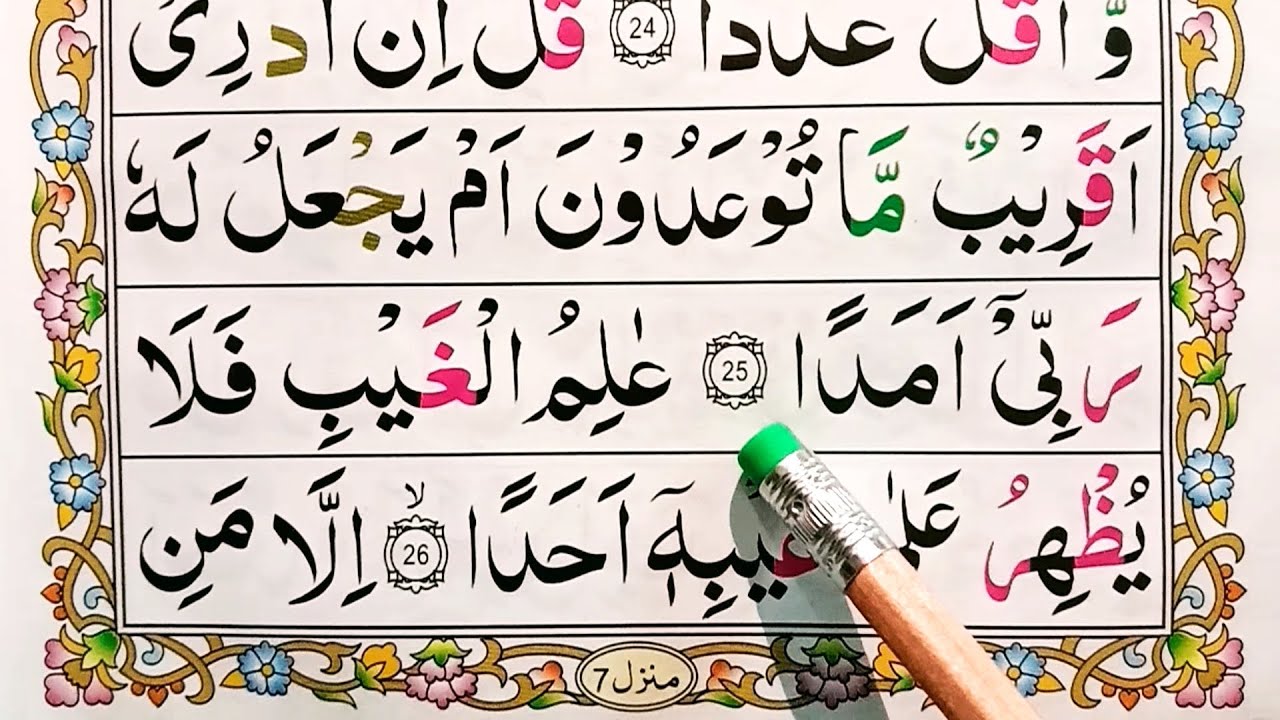 وَّ اَقَلُّ عَدَدًا 24 قُلْ اِنْ اَدْرِىْٓ
اَقَرِيْبٌ مَّا تُوْعَدُوْنَ اَمْ يَجْعَلُ لَهٗ
رَبِّىْٓ اَمَدًا 25 عٰلِمُ الْغَيْبِ فَلَا
يُظْهِرُ عَلٰى غَيْبِهٖٓ اَحَدًا 26 ۙ اِلَّا مَنِ
منزل 7